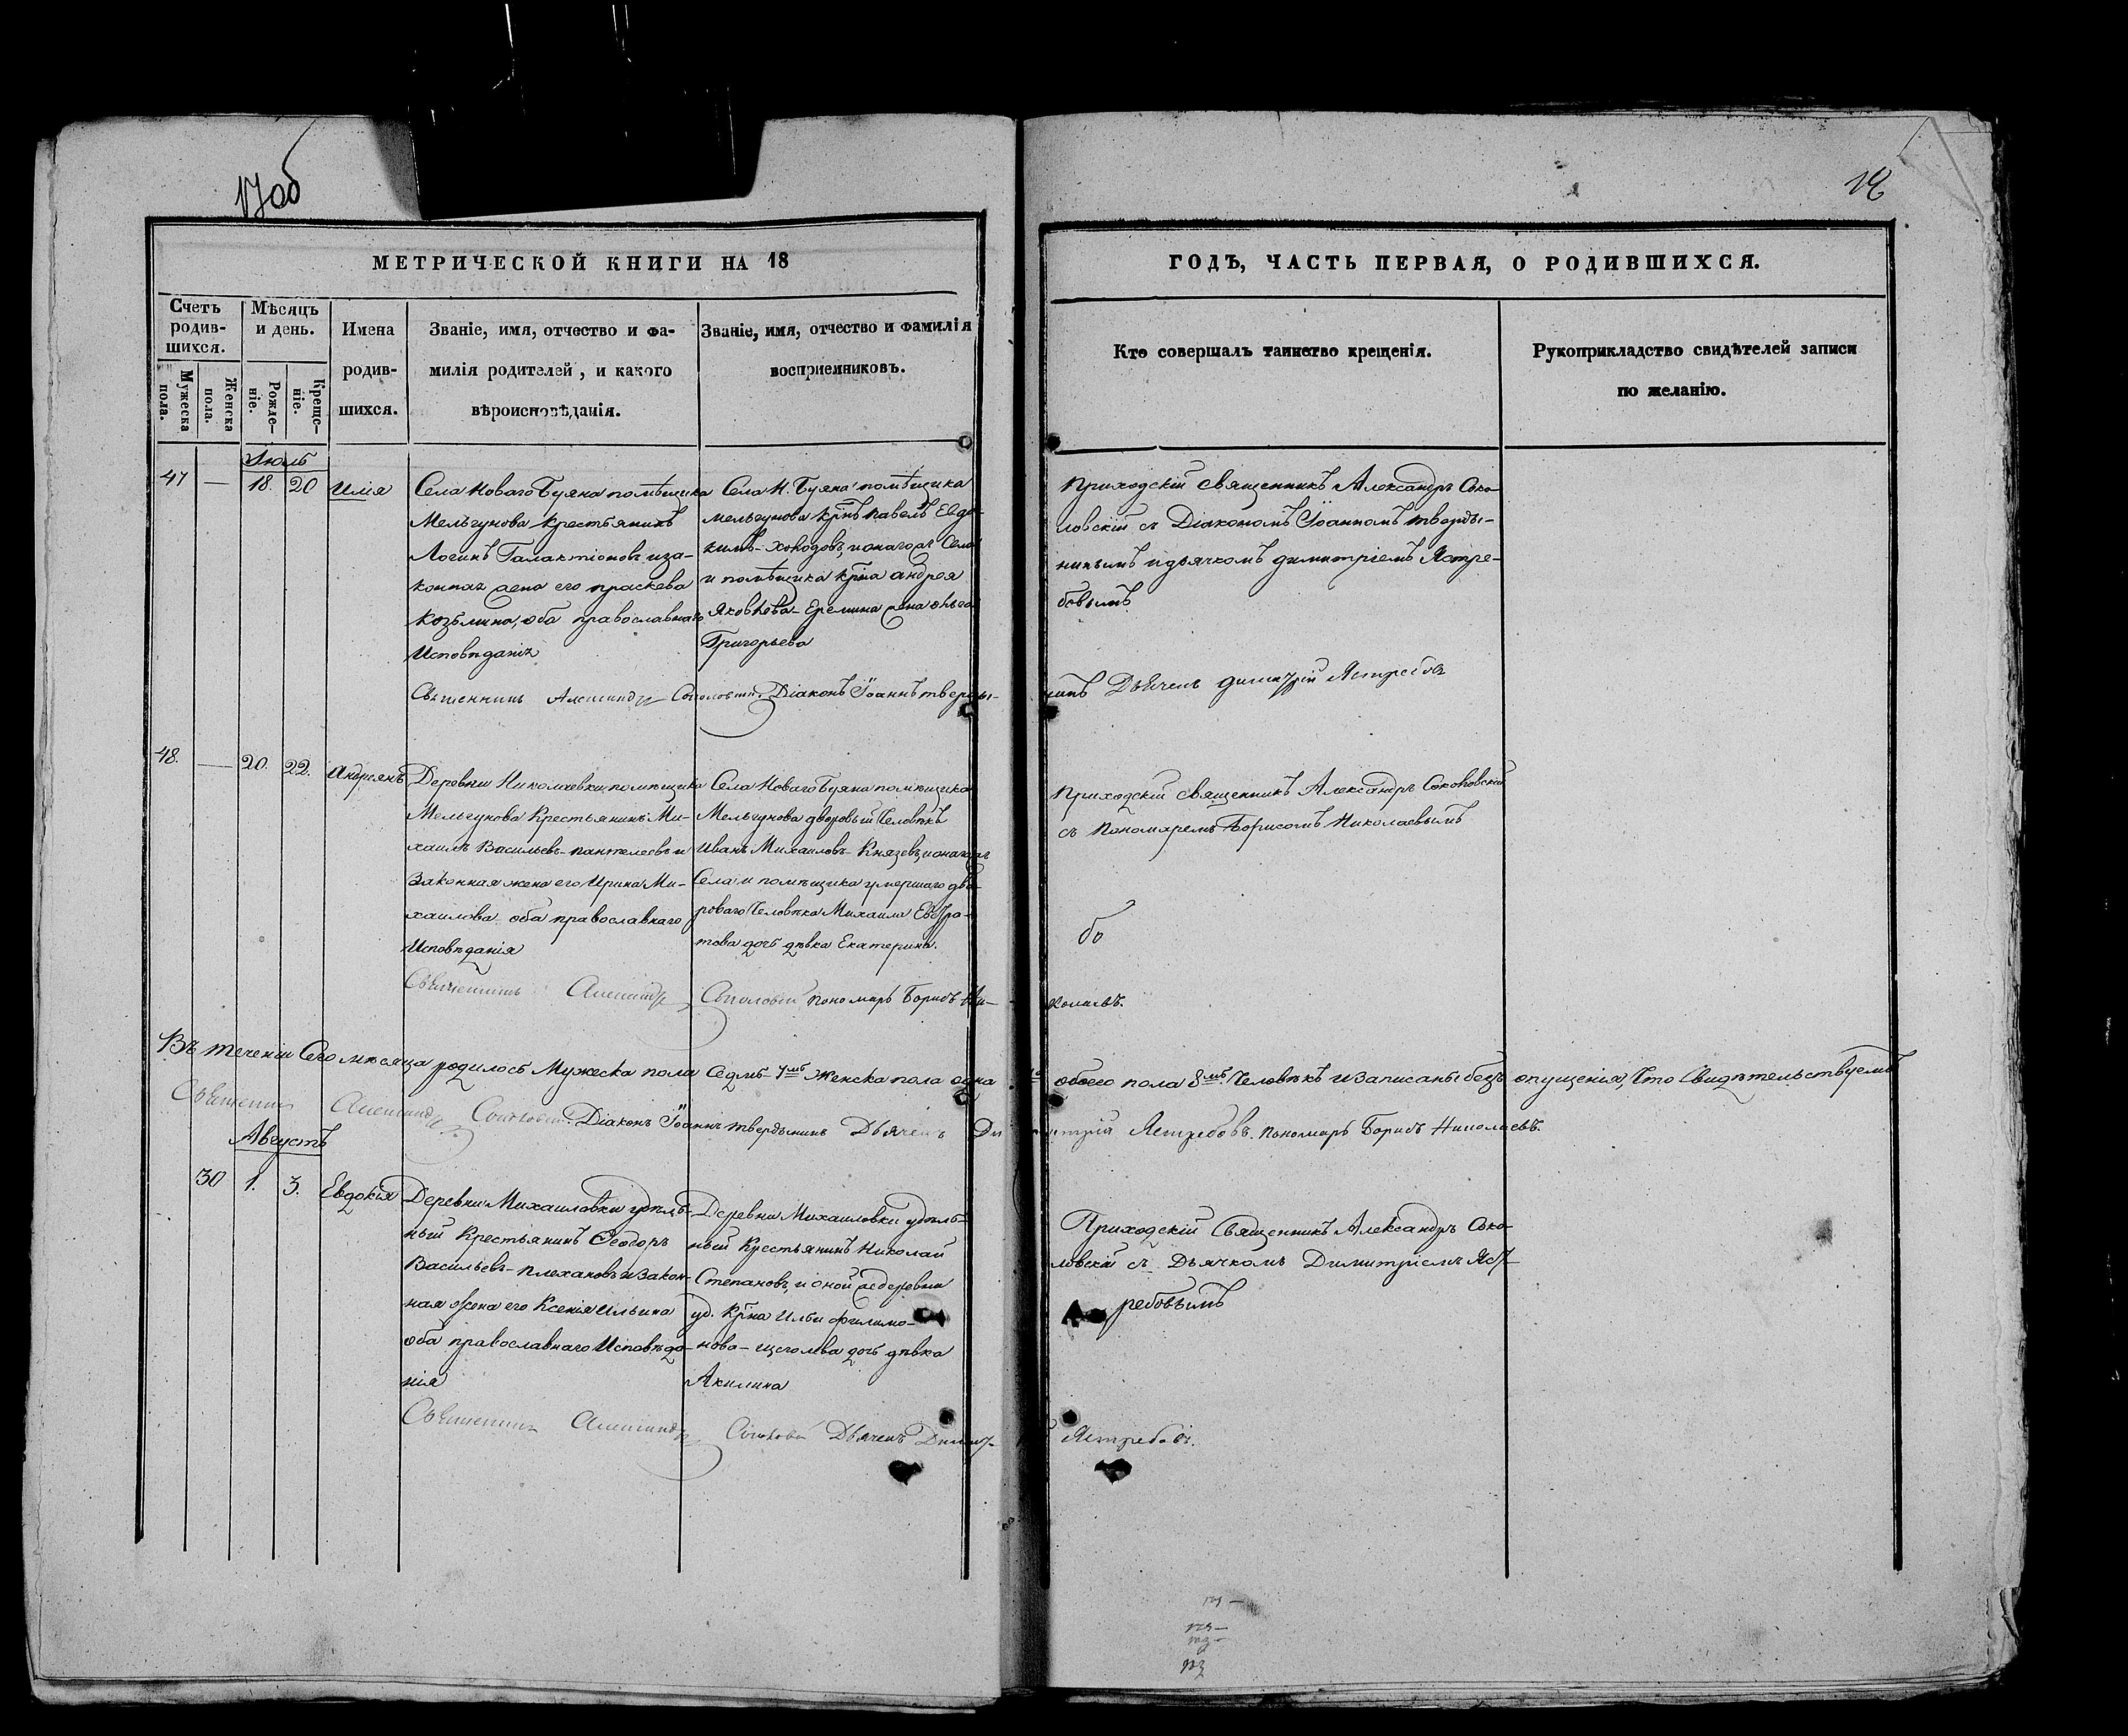 17об
18
МЕТРИЧЕСКОЙ КНИГИ НА 18
ГОДЪ, ЧАСТЬ ПЕРВАЯ, О РОДИВШИХСЯ.
Счетъ родив-шихся.
Мужеска пола.
Женска пола.
Мѣсяцъ и день.
Рожде-ніе.
Креще-ніе.
Имена родив-шихся.
Званіе, имя, отчество и фа-
милія родителей, и какого
вѣроисповѣданія.
Званіе, имя, отчество и фамилія
воспріемниковъ.
Кто совершалъ таинство крещенія.
Рукоприкладство свидѣтелей записи
по желанію.
Июль
47 — 18. 20 Илія
Села Новаго Буяна помѣщика
Мельгунова крестьянинъ
Логинъ Галактіоновъ иза-
конная жена его праскева
Козьмина, оба православнаго
Исповѣданія
Села Н. Буяна помѣщика
мельгунова крⷭ҇нъ павелъ Евдо-
кимъ- Холодовъ, и онагоже Села
и помѣщика крⷭ҇на андрея
Яковлева- Еремина жена
Григорьева
Приходскій священникъ Александръ Соко-
ловскій съ Діакономъ Іоанномъ тверды-
нинымъ идьячкомъ димитріемъ Ястре-
бовымъ
Священникъ Александръ Соколовскій. Діаконъ Іоаннъ тверды-
нинъ Дьячекъ димитрій Ястребовъ
48. — 20. 22. Андреянъ
Деревни Николаевки помѣщика
Мельгунова Крестьянинъ Ми-
хаилъ Васильевъ- пантелеевъ и
Законная жена его Ирина Ми-
хаилова оба православнаго
Исповѣданія
Села Новаго Буяна помѣщика
Мельгунова дворовый Человѣкъ
Иванъ Михаиловъ- Князевъ, и онагоже
Села и помѣщика умершаго дво-
роваго Человѣка Михаила Евстра-
това дочь дѣвка Екатерина.
Приходскій священникъ Александръ Соколовскій
съ Пономаремъ Борисомъ Николаевымъ
Священникъ Александръ Соколовскій пономарь Борисъ Ни-
колаевъ.
Въ теченіи Сего мѣсяца родилось Мужеска пола Седмь- 7мь Женска пола одна
обоего пола 8мь Человѣкъ изаписаны безъ опущенія, Что Свидѣтельствуемъ
Священникъ Александръ Соколовскій. Діаконъ Іоаннъ твердынинъ Дьячекъ Ди
митрій Ястребовъ. пономарь Борисъ Николаевъ.
Августъ
30 1. 3. Евдокія
Деревни Михаиловки удѣль-
ный Крестьянинъ Ѳеодоръ
Васильевъ- плехановъ изакон-
ная жена его Ксенія Ильина
оба православнаго Исповѣда-
нія
Деревни Михаиловки удѣль-
ный Крестьянинъ Николай
Степановъ, и оной же деревни
уд. Крⷭ҇на Ильи филимо-
нова- дочь дѣвка
Акилина
Приходскій Священникъ Александръ Соко-
ловскій съ Дьячкомъ Димитріемъ Яст-
ребовымъ
Священникъ Александръ Соколовскій Дьячекъ Димит-
Ястребовъ.